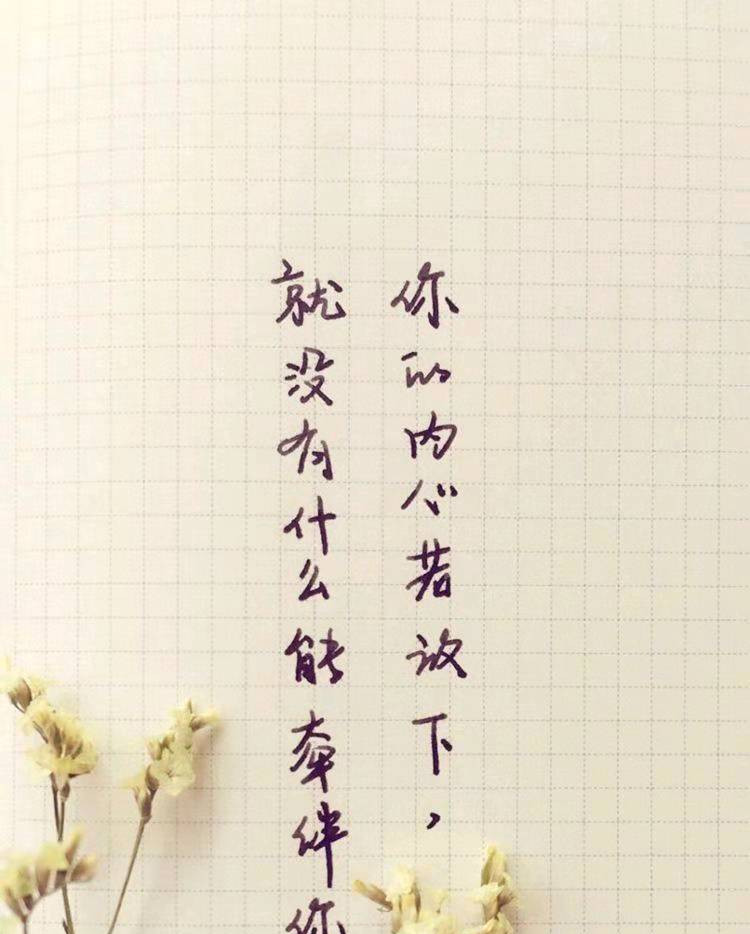 你的内心若放下，
就没有什么能牵绊你